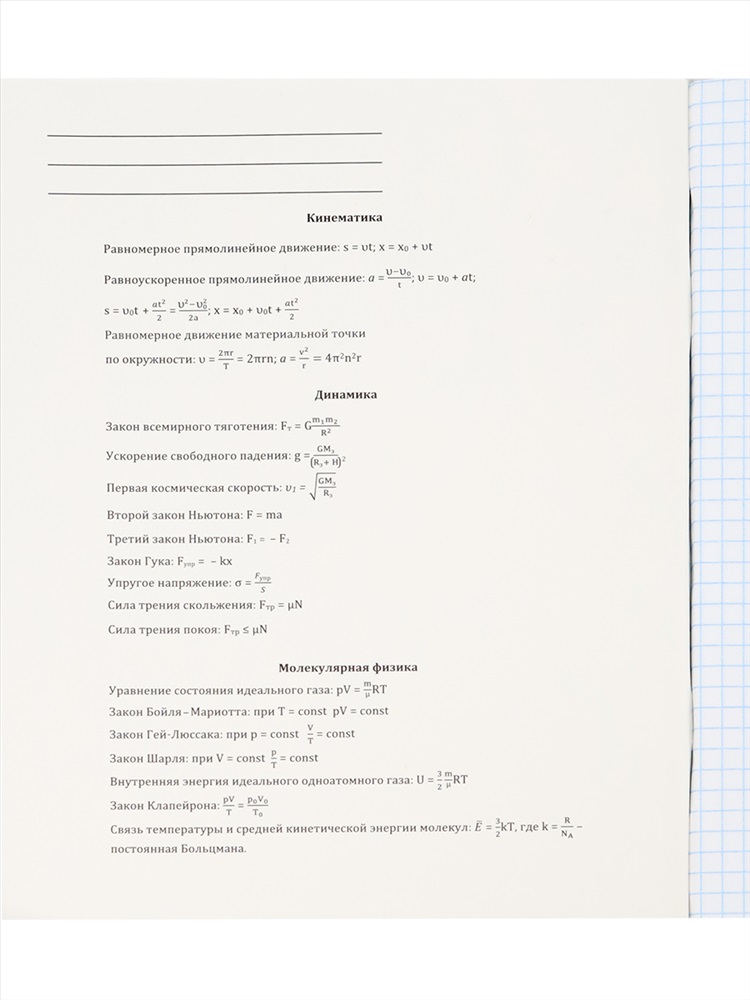 Кинематика
Равномерное прямолинейное движение: s = υt; x = x₀ + υt
Равноускоренное прямолинейное движение: a = (υ−υ₀)/t; υ = υ₀ + at;
s = υ₀t + at²/2 = (υ²−υ₀²)/2a; x = x₀ + υ₀t + at²/2
Равномерное движение материальной точки
по окружности: υ = 2πr/T = 2πrn; a = v²/r = 4π²n²r
Динамика
Закон всемирного тяготения: Fₜ = G m₁m₂/R²
Ускорение свободного падения: g = GM₃/(R₃+ H)²
Первая космическая скорость: υ₁ = √(GM₃/R₃)
Второй закон Ньютона: F = ma
Третий закон Ньютона: F₁ = − F₂
Закон Гука: Fупр = − kx
Упругое напряжение: σ = Fупр/S
Сила трения скольжения: Fтр = μN
Сила трения покоя: Fтр ≤ μN
Молекулярная физика
Уравнение состояния идеального газа: pV = m/μ RT
Закон Бойля–Мариотта: при T = const pV = const
Закон Гей-Люссака: при p = const V/T = const
Закон Шарля: при V = const p/T = const
Внутренняя энергия идеального одноатомного газа: U = 3/2 m/μ RT
Закон Клапейрона: pV/T = p₀V₀/T₀
Связь температуры и средней кинетической энергии молекул: Ē = 3/2 kT, где k = R/N_A –
постоянная Больцмана.